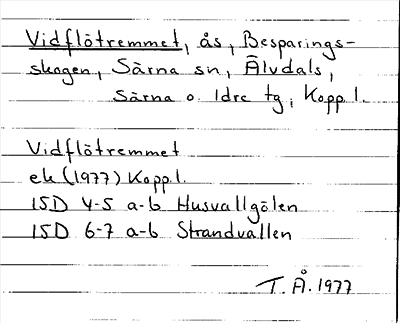 Vidflötremmet, ås, Besparings-
skogen, Särna sn, Älvdals,
Särna o. Idre tg, Kopp l.
Vidflötremmet
ek (1977) Kopp l.
15D 4-5 a-b Husvallgölen
15D 6-7 a-b Strandvallen
T. Å. 1977